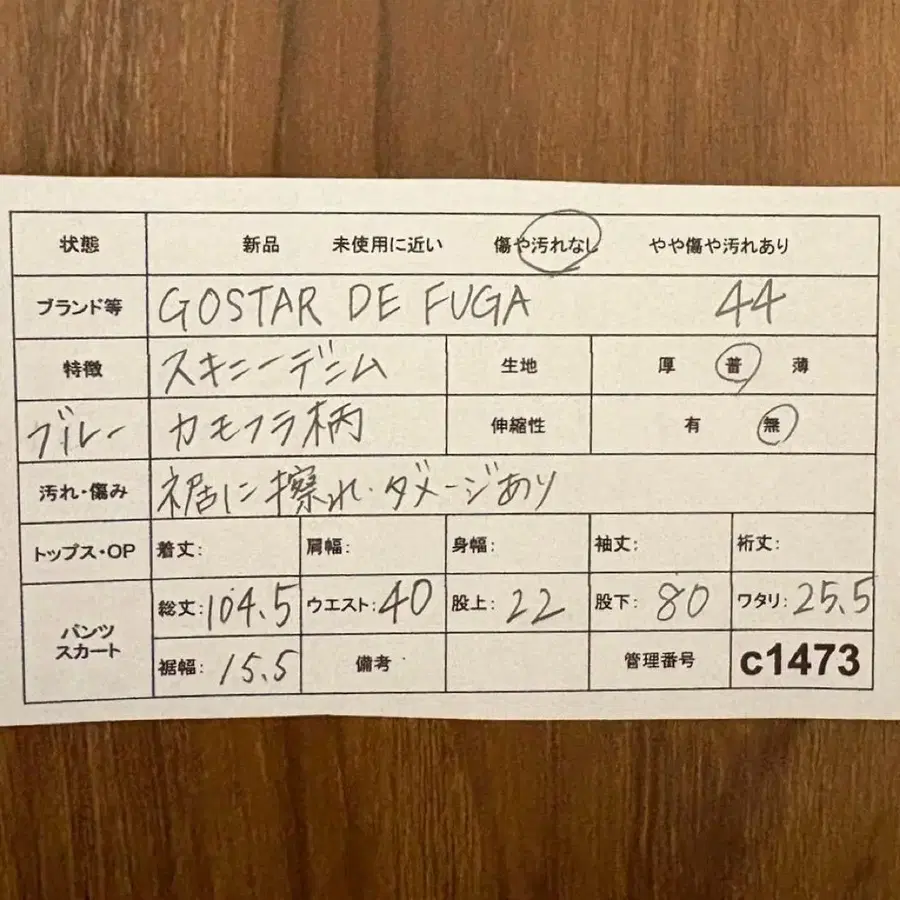 状態 新品 未使用に近い 傷や汚れなし やや傷や汚れあり
ブランド等 GOSTAR DE FUGA 44
特徴 スキニーデニム 生地 厚 普 薄
ブルー カモフラ柄 伸縮性 有 無
汚れ・傷み 裾に擦れ・ダメージあり
トップス・OP 着丈: 肩幅: 身幅: 袖丈: 裄丈:
パンツ スカート 総丈:104.5 ウエスト:40 股上:22 股下:80 ワタリ:25.5
裾幅:15.5 備考 管理番号 c1473